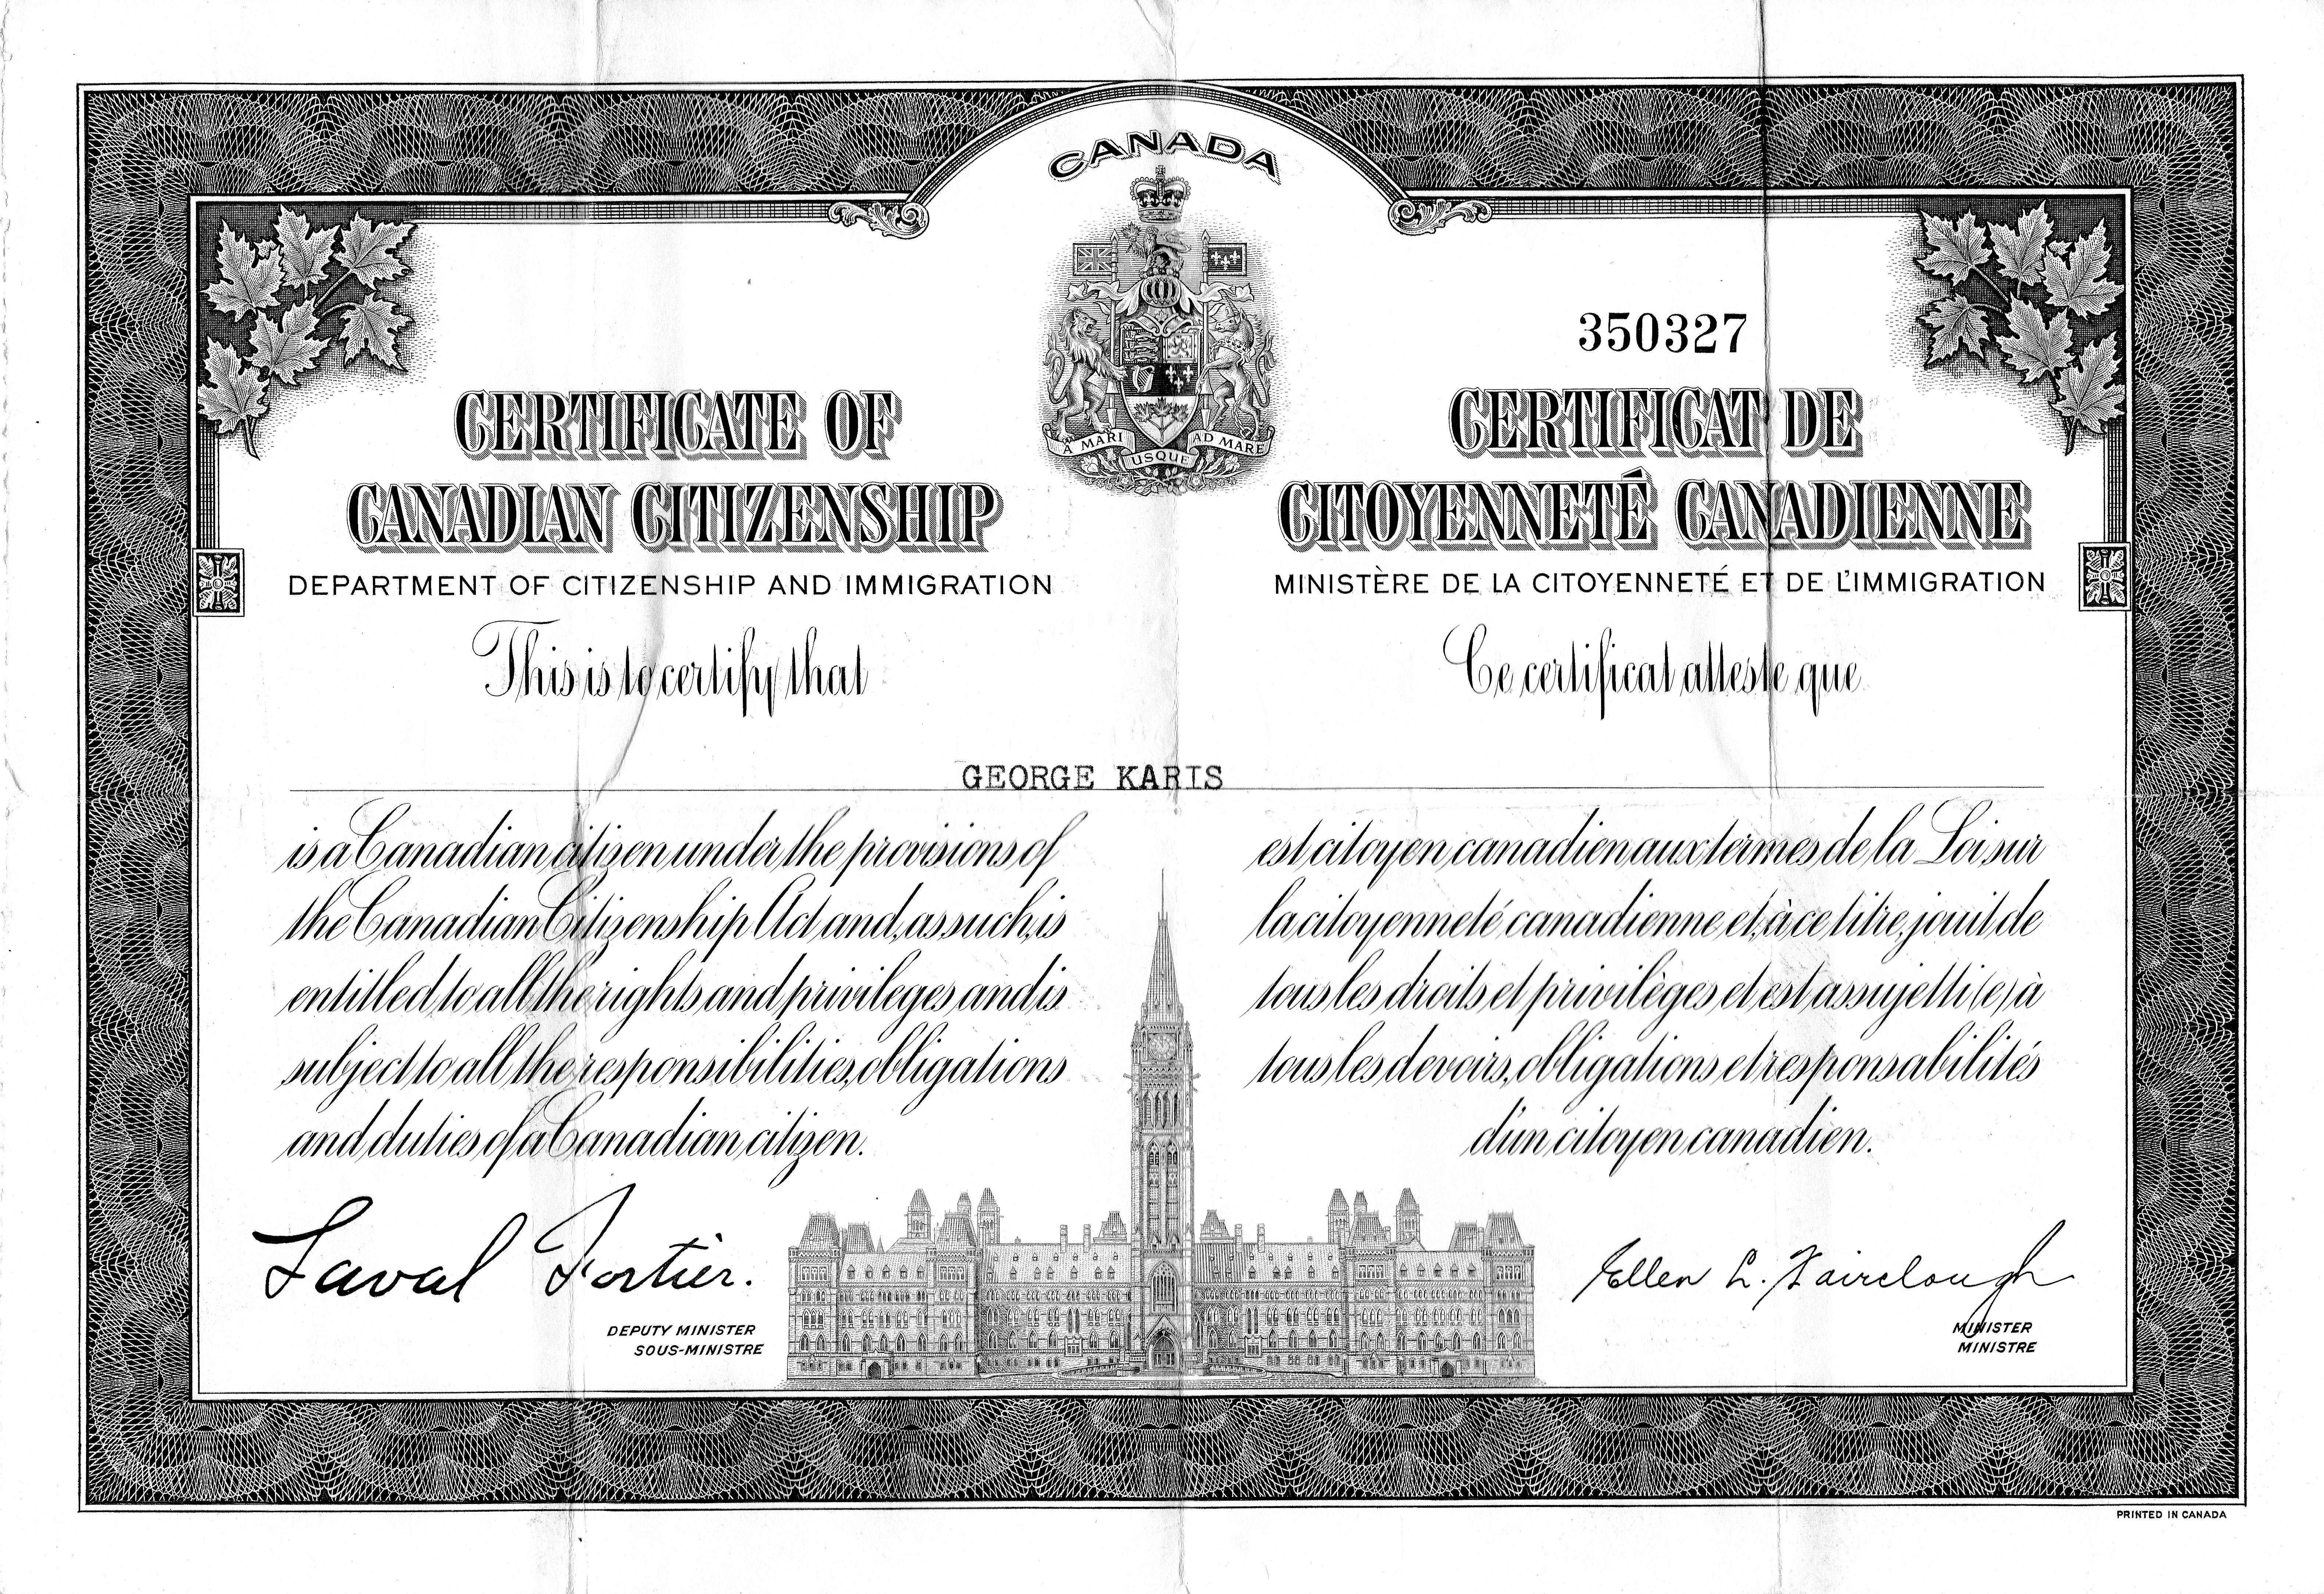 CANADA
A MARI USQUE AD MARE
350327
CERTIFICATE OF
CANADIAN CITIZENSHIP
DEPARTMENT OF CITIZENSHIP AND IMMIGRATION
This is to certify that
CERTIFICAT DE
CITOYENNETÉ CANADIENNE
MINISTÈRE DE LA CITOYENNETÉ ET DE L'IMMIGRATION
Ce certificat atteste que
GEORGE KARIS
is a Canadian citizen under the provisions of
the Canadian Citizenship Act and, as such, is
entitled to all the rights and privileges and is
subject to all the responsibilities, obligations
and duties of a Canadian citizen.
est citoyen canadien aux termes de la Loi sur
la citoyenneté canadienne et, à ce titre, jouit de
tous les droits et privilèges et est assujetti (e) à
tous les devoirs, obligations et responsabilités
d'un citoyen canadien.
Laval Fortier.
DEPUTY MINISTER
SOUS-MINISTRE
Ellen L. Fairclough
MINISTER
MINISTRE
PRINTED IN CANADA